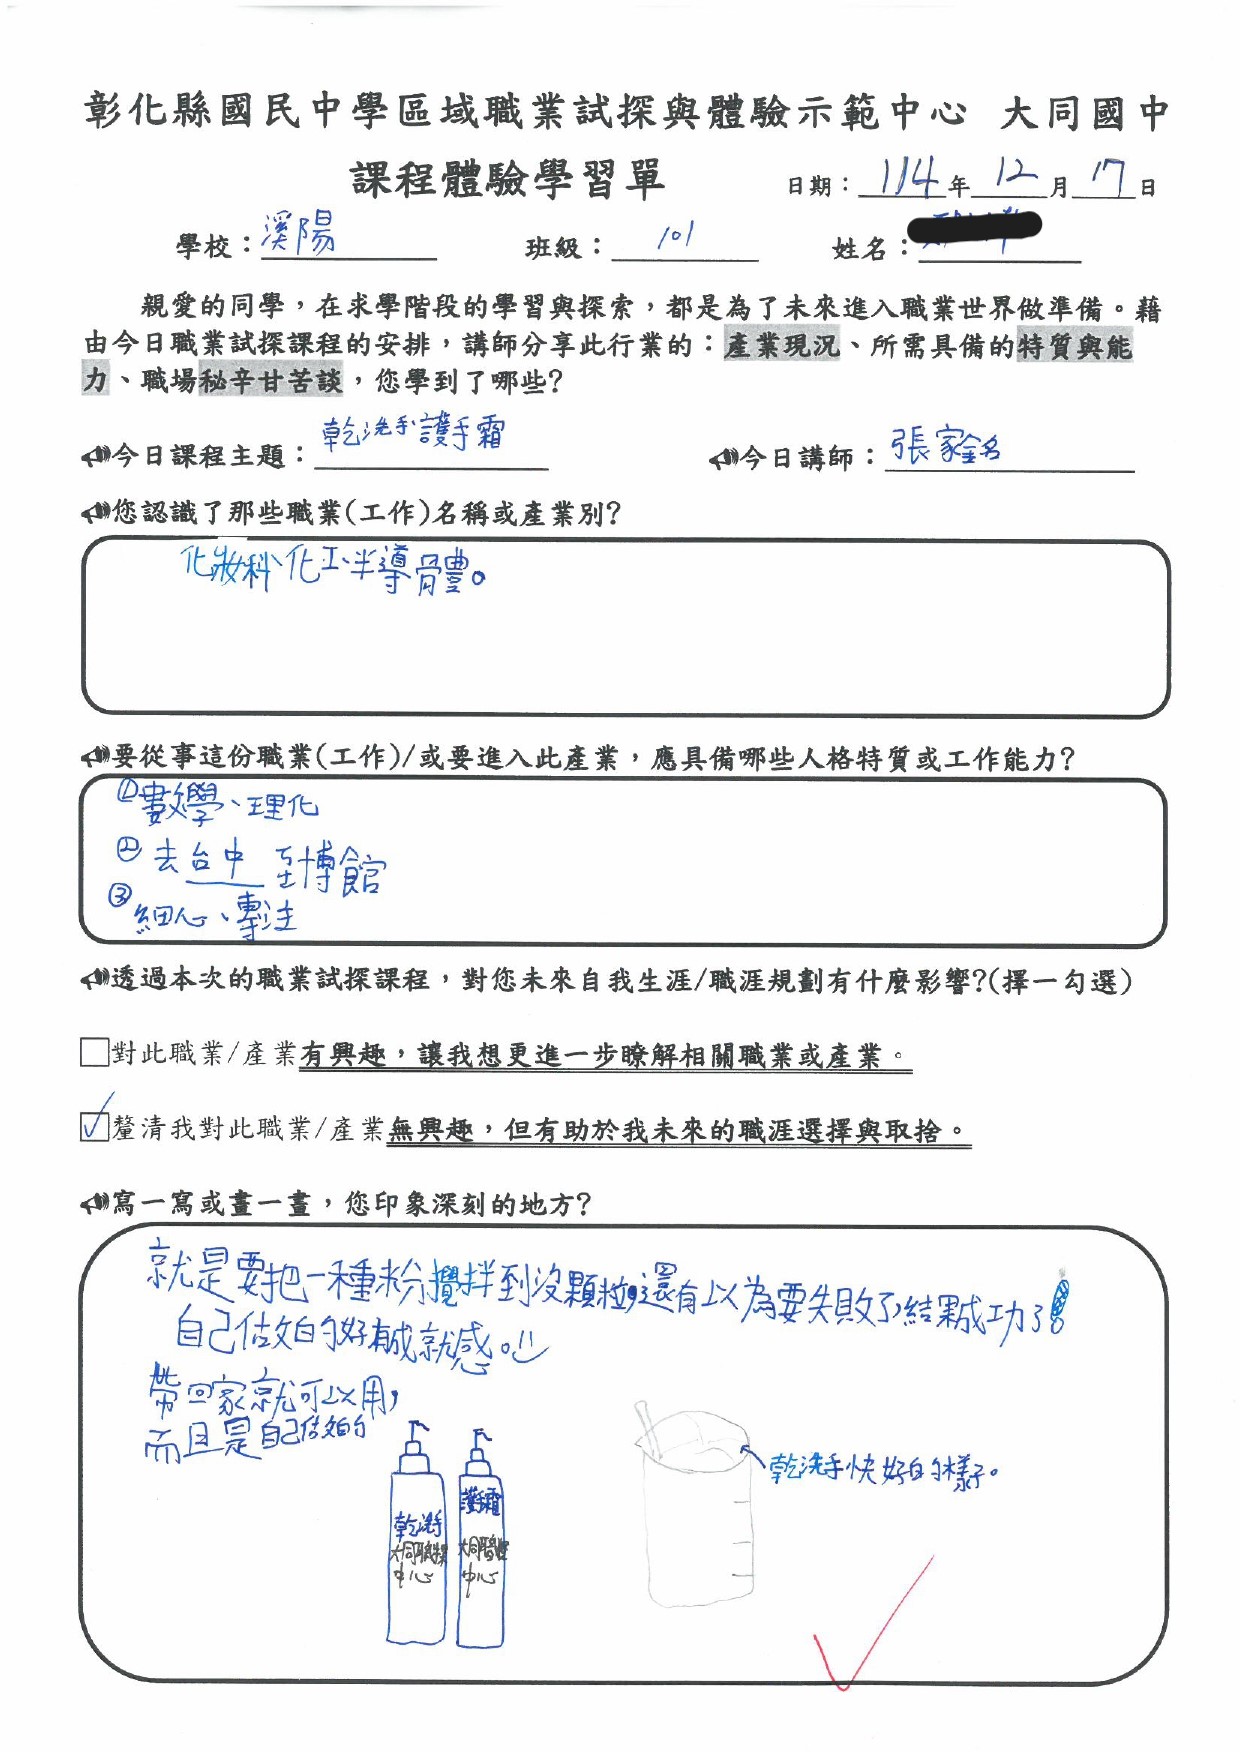 彰化縣國民中學區域職業試探與體驗示範中心 大同國中
課程體驗學習單
日期：114年12月17日
學校：溪陽 班級：101 姓名：
親愛的同學，在求學階段的學習與探索，都是為了未來進入職業世界做準備。藉
由今日職業試探課程的安排，講師分享此行業的：產業現況、所需具備的特質與能
力、職場秘辛甘苦談，您學到了哪些?
今日課程主題：乾洗手護手霜 今日講師：張家銘
您認識了那些職業(工作)名稱或產業別?
化妝科、化工、半導體。
要從事這份職業(工作)/或要進入此產業，應具備哪些人格特質或工作能力?
①數學、理化
②去台中 博館
③細心、專注
透過本次的職業試探課程，對您未來自我生涯/職涯規劃有什麼影響?(擇一勾選)
□對此職業/產業有興趣，讓我想更進一步瞭解相關職業或產業。
☑釐清我對此職業/產業無興趣，但有助於我未來的職涯選擇與取捨。
寫一寫或畫一畫，您印象深刻的地方?
就是要把一種粉攪拌到沒顆粒,還有以為要失敗了,結果成功了!
自己做的好有成就感。
帶回家就可以用,
而且是自己做的
乾洗手快好的樣子。
乾洗手
大同職探
中心
護手霜
大同職探
中心